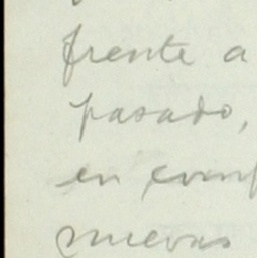 frente a
pasado,
en comp
nuevas